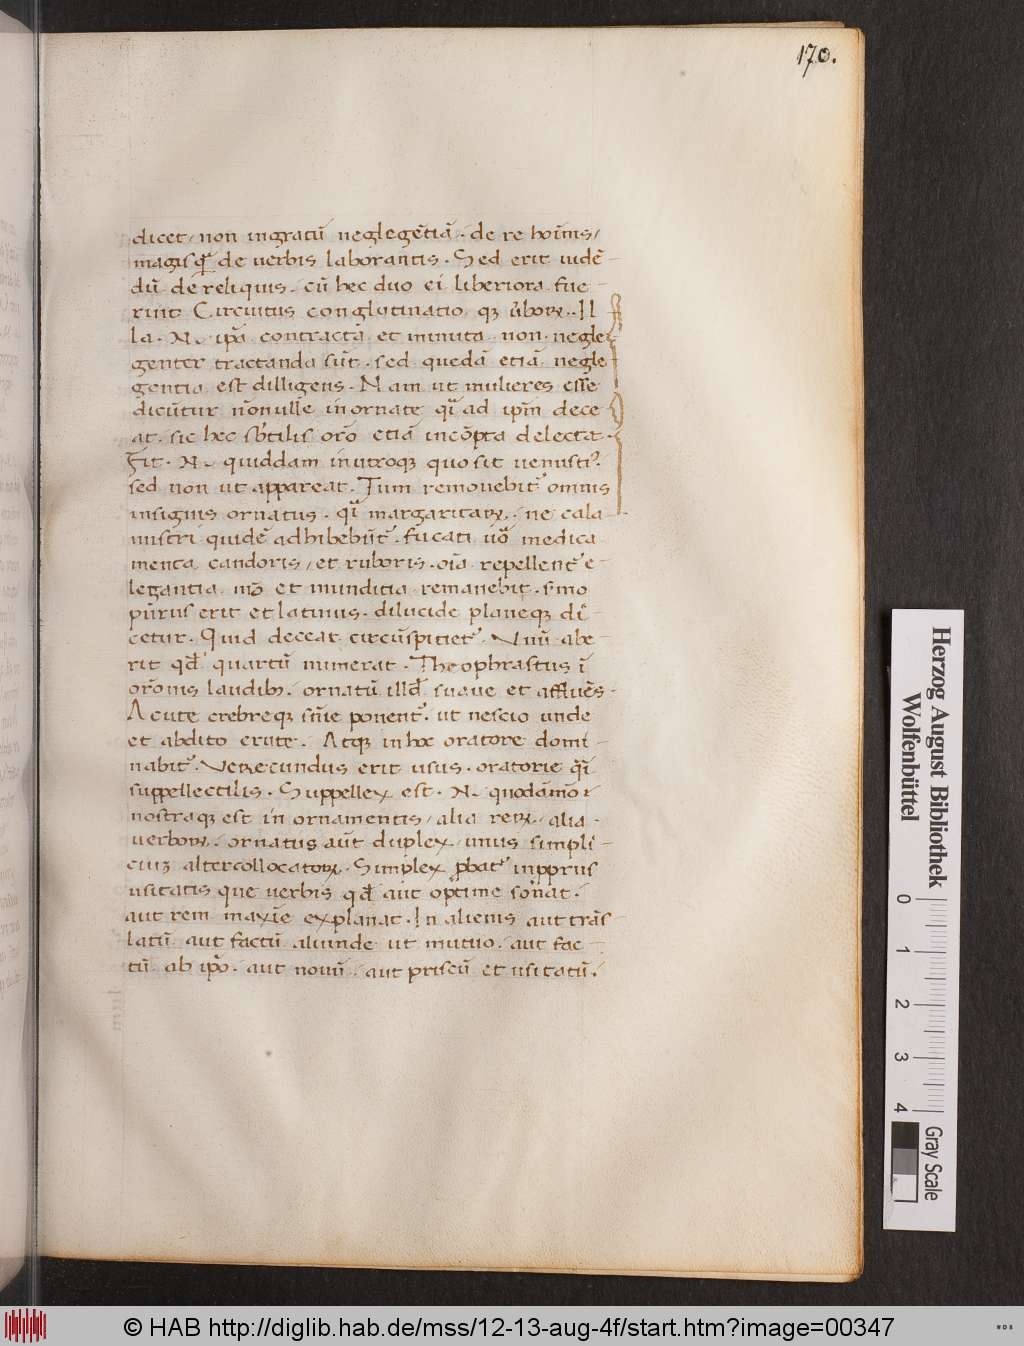 170.
dicet / non ingratū neglegētiā . de re hoīnis /
magis q̄ de verbis laborantis . Sed erit uidē-
dū de reliquis . cū hec duo ei liberiora fue-
rint Circuitus conglutinatio qꝫ ūboꝝ . Il
la . N . ip̄a contracta et minuta non negle
genter tractanda sūt . sed quedā etiā negle
gentia est dilligens . Nam ut mulieres esse
dicūtur nōnulle inornate q̄ ad ip̄m dece
at . sic hec sb̄tilis orō etiā incōpta delectat .
Fit . N . quiddam inutroqꝫ quo sit uenusti⁹ .
sed non ut appareat . Tum remouebit᷑ omnis
insignis ornatus . q̄i margaritaꝝ . ne cala
mistri quidē adhibebūt᷑ . fucati uō medica
menta candoris / et ruboris . oīa repellent᷑ e-
legantia mō et munditia remanebit . s̄mo
purus erit et latinus . dilucide planeqꝫ di-
cetur . Quid deceat circūspitiet᷑ . Nnū abe
rit qđ quartū numerat . Theophrastus ī
orōnis laudibꝫ . ornatū illđ suaue et affluēs .
Acute crebreqꝫ sn̄ie ponent᷑ . ut nescio unde
et abdito erute . Atqꝫ in hoc oratore domi-
nabit᷑ . Verecundus erit usus . oratorie q̄i
suppellectilis . Suppellex est . N . quodāmōi
nostraqꝫ est in ornamentis / alia reꝝ / alia
uerboꝝ . ornatus aūt duplex / unus simpli-
ciuꝫ alter collocatoꝝ . Simplex ꝓbat᷑ in pprus
usitatis que uerbis qđ aut optime sonat .
aut rem maxīe explanat . In alienis aut trās
latū aut factū aliunde ut mutuo . aut fac-
tū ab ip̄o . aut nouū . aut priscū et usitatū .
Herzog August Bibliothek
Wolfenbüttel
0 1 2 3 4
Gray Scale
© HAB http://diglib.hab.de/mss/12-13-aug-4f/start.htm?image=00347